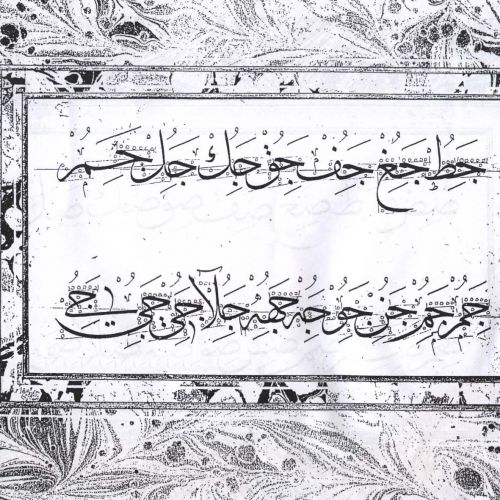 جط جغ جف جق جك جل جم
جم جم جن جو جه جهه جلا جى جى